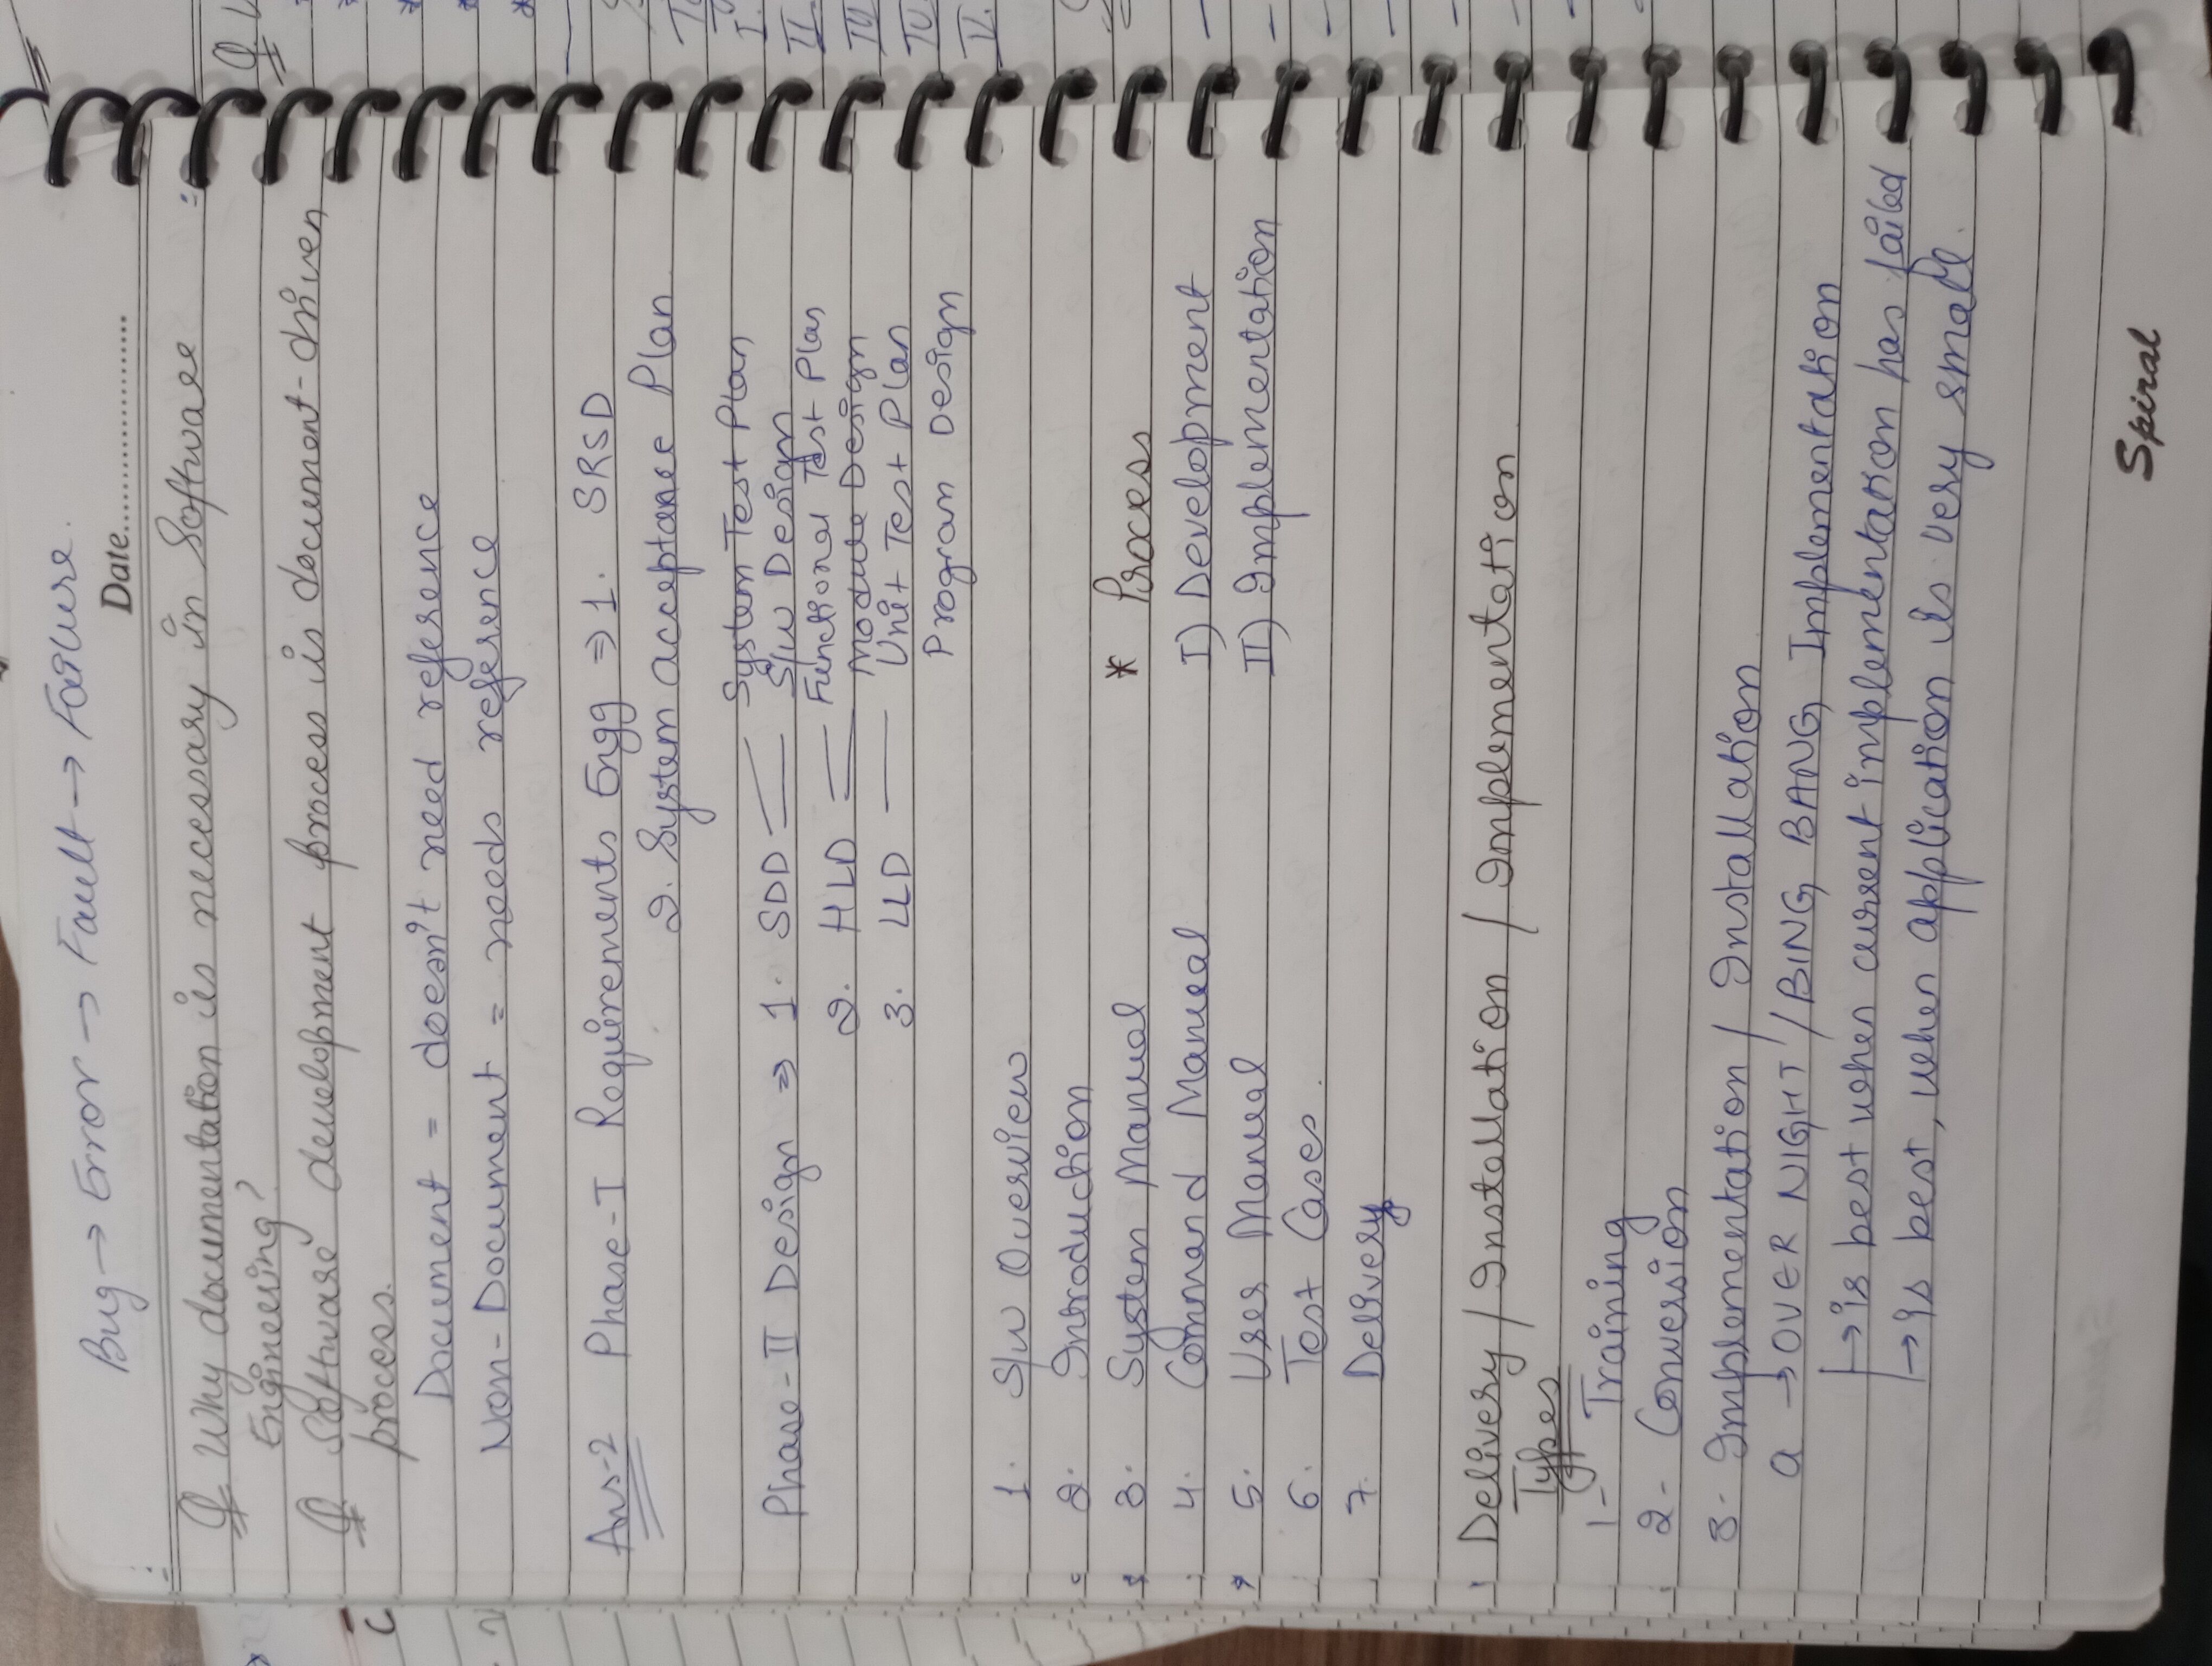 Bug → Error → Fault → Failure.
Date..................
Q. Why documentation is necessary in Software
Engineering?
Q Software development process is document-driven
process.
Document = doesn't need reference
Non-Document = needs reference
Ans-2 Phase-I Requirements Engg ⇒ 1. SRSD
2. System acceptance Plan
System Test Plan
Phase-II Design ⇒ 1. SDD S/W Design
Functional Test Plan
2. HLD Module Design
3. LLD Unit Test Plan
Program Design
1. S/W Overview
2. Introduction
3. System Manual * Process
4. Command Manual I) Development
5. User Manual II) Implementation
6. Test Cases.
7. Delivery
Delivery / Installation / Implementation
Types
1- Training
2- Conversion
3- Implementation / Installation
a → OVER NIGHT / BING BANG Implementation
→ is best when current implementation has failed
→ is best, when application is very small.
Spiral